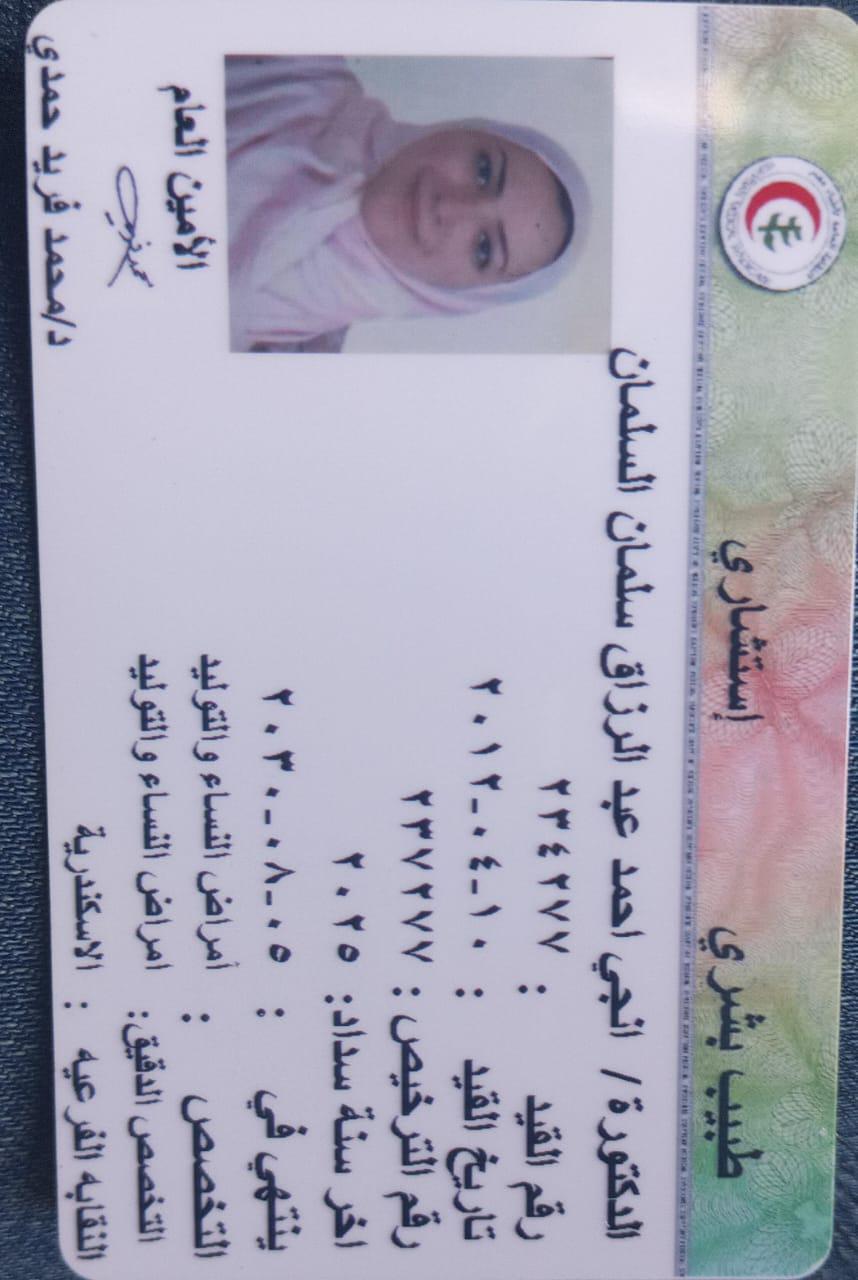 طبيب بشري إستشاري
الدكتورة / انجي احمد عبد الرزاق سلمان السلمان
رقم القيد : ٢٣٤٢٧٧
تاريخ القيد : ٢٠١٢-٠٤-١٠
رقم الترخيص : ٢٣٧٢٧٧
اخر سنة سداد: ٢٠٢٥
ينتهي في : ٢٠٣٠-٠٨-٠٥
التخصص : أمراض النساء والتوليد
التخصص الدقيق: امراض النساء والتوليد
النقابه الفرعيه : الاسكندرية
الأمين العام
د/محمد فريد حمدي